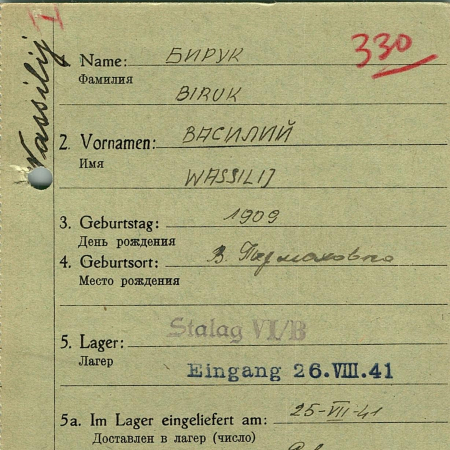 Wassilij
I
330
1. Name: БИРУК
Фамилия
BIRUK
2. Vornamen: ВАСИЛИЙ
Имя
WASSILIJ
3. Geburtstag: 1909
День рождения
4. Geburtsort: В.
Место рождения
5. Lager: Stalag VI/B
Лагер
Eingang 26.VIII.41
5a. Im Lager eingeliefert am: 25-VII-41
Доставлен в лагер (число)